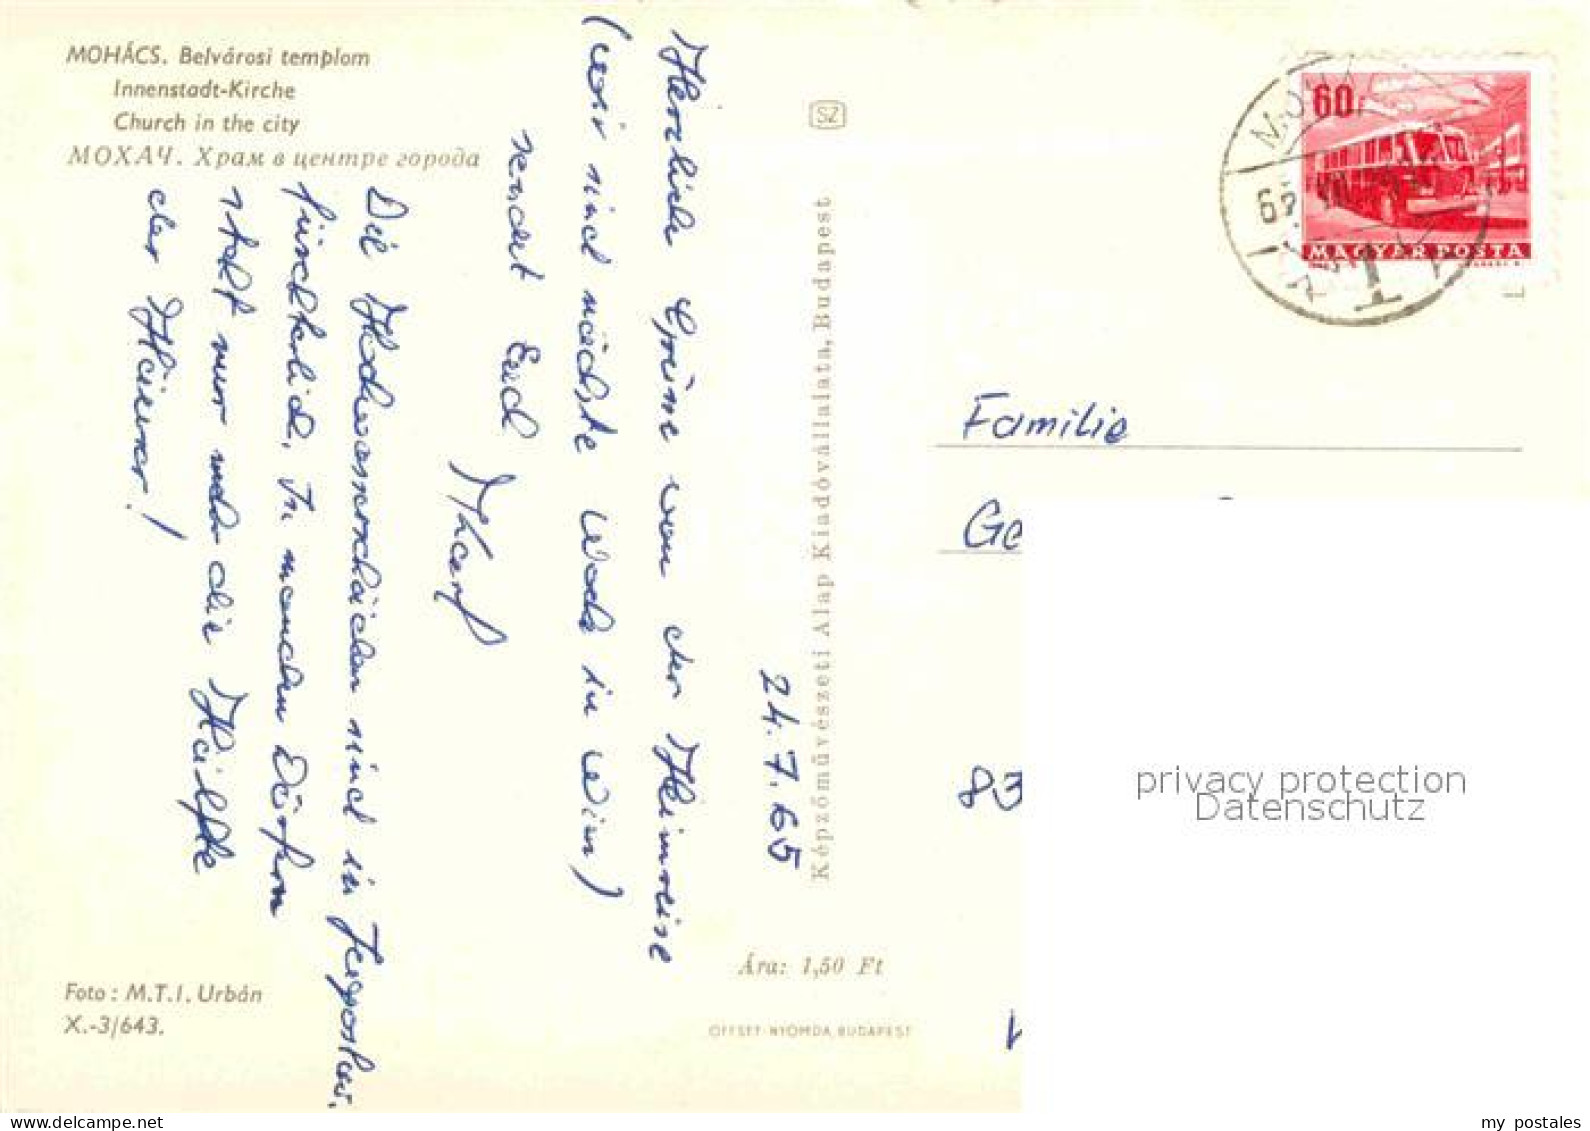 MOHÁCS. Belvárosi templom
Innenstadt-Kirche
Church in the city
МОХАЧ. Храм в центре города
24.7.65
Herzliche Grüsse von der Heimreise
(wir sind nächste Woche in Wien)
sendet Euch
Die Hochwasserschäden sind in Jugoslaw.
fürchterlich. In manchen Dörfern
steht nur mehr die Hälfte
der Häuser!
Foto: M.T.I. Urbán
X.-3/643.
SZ
Képzőművészeti Alap Kiadóvállalata, Budapest
Ára: 1,50 Ft
OFFSET-NYOMDA, BUDAPEST
60f
MAGYAR POSTA
Familie
Ge
83
1
privacy protection
Datenschutz
my postales